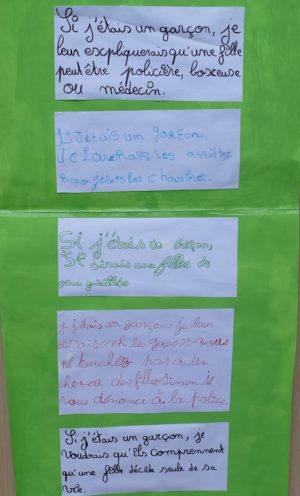 Si j'étais un garçon, je
leur expliquerais qu'une fille
peut être policière, boxeuse
ou médecin.
Si J'étais un garçon.
Je laverais les assiettes
rangerais les chambres.
Si j'étais un garçon,
je dirais aux filles de
je j'étais un garçon je leur
dirais eh les gars vous
ne touchez pas a un
cheveu des filles sinon je
vous dénonce à la police.
Si j'étais un garçon, je
voudrais qu'ils comprennent
qu'une fille décide seule de sa
vie.